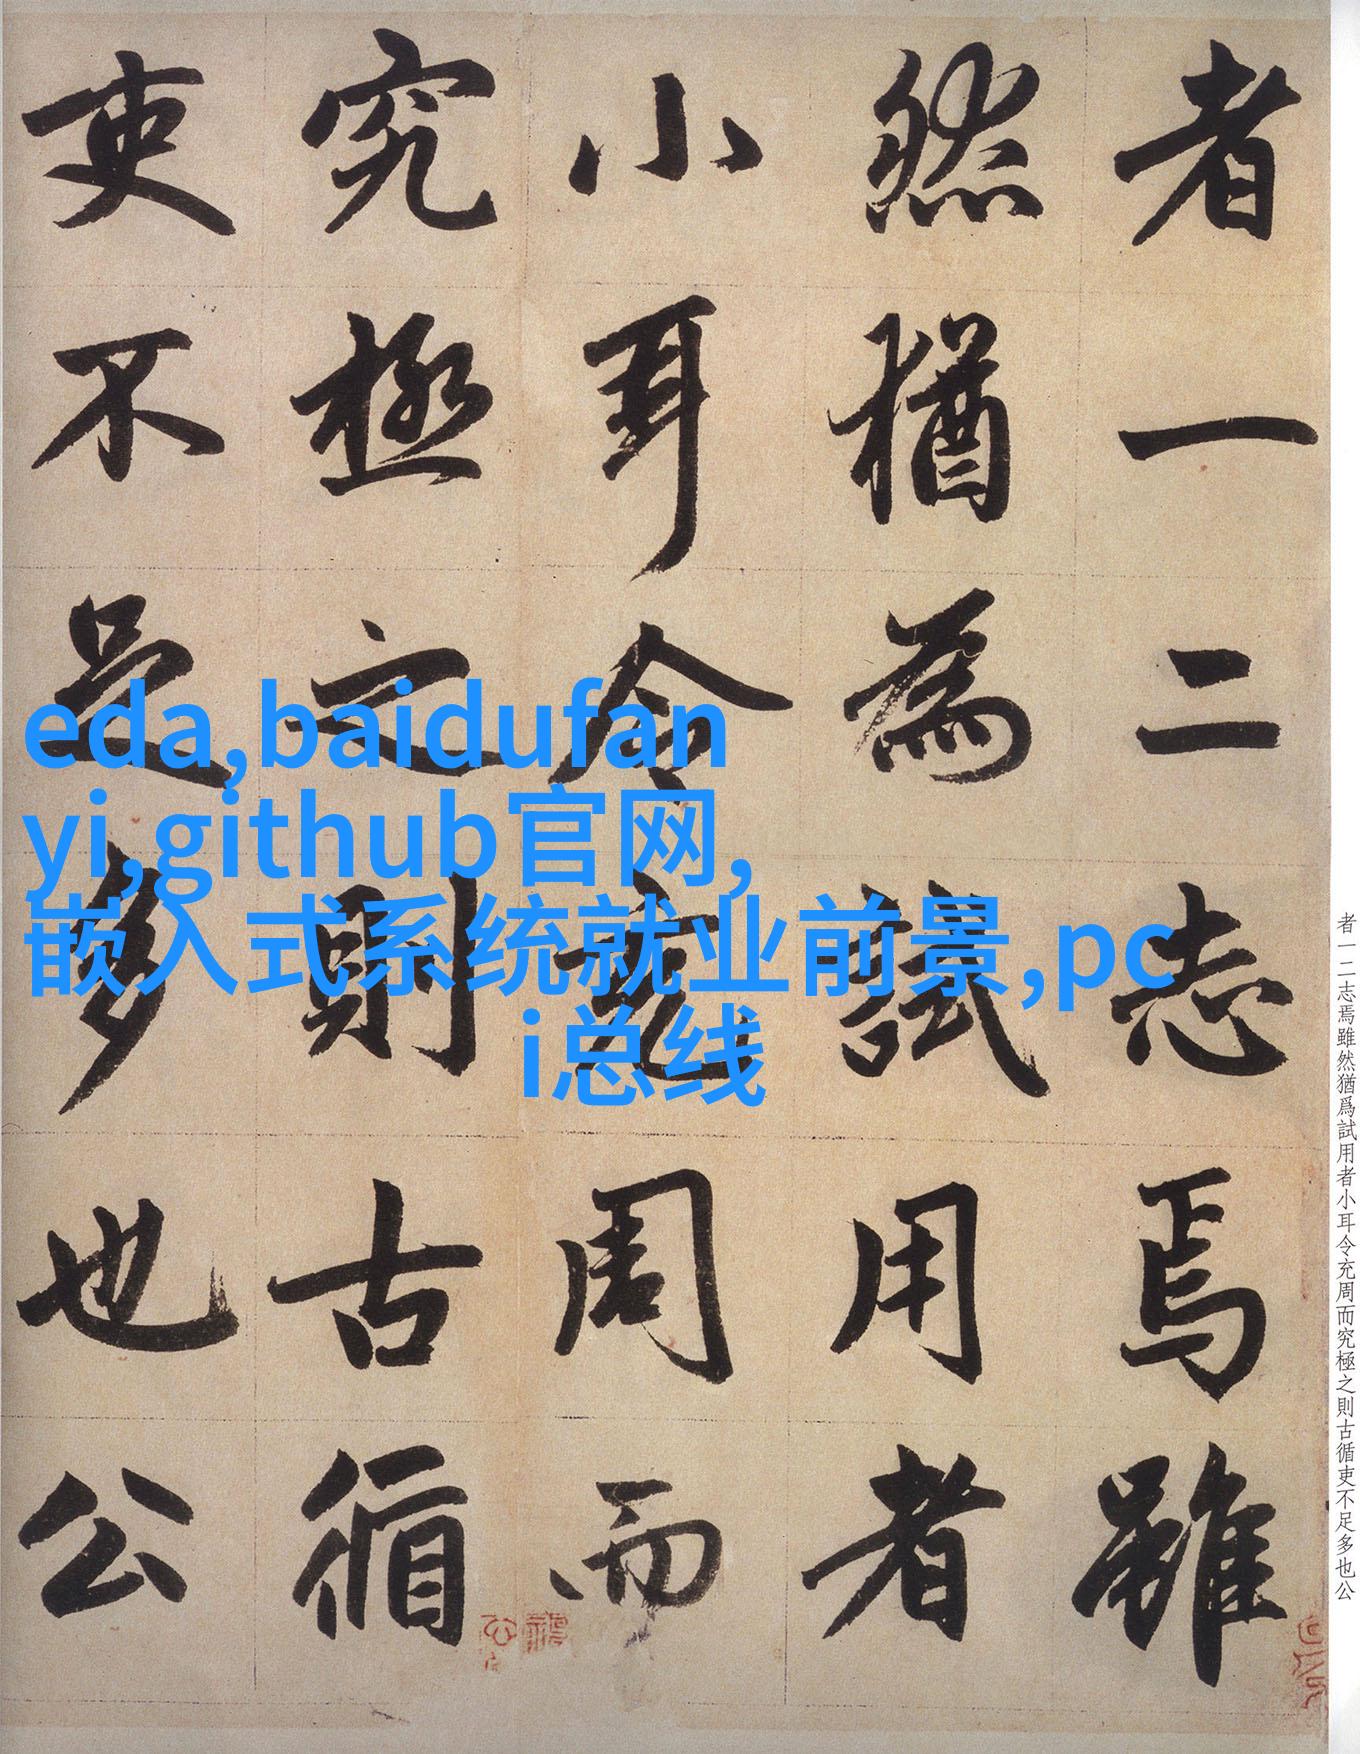 者一二志焉雖
然猶為試用者
小耳令充周而
究極之則古循
吏不足多也公
eda,baidufan
yi,github官网,
嵌入式系统就业前景,pc
i总线
者一二志焉雖然猶爲試用者小耳令充周而究極之則古循吏不足多也公